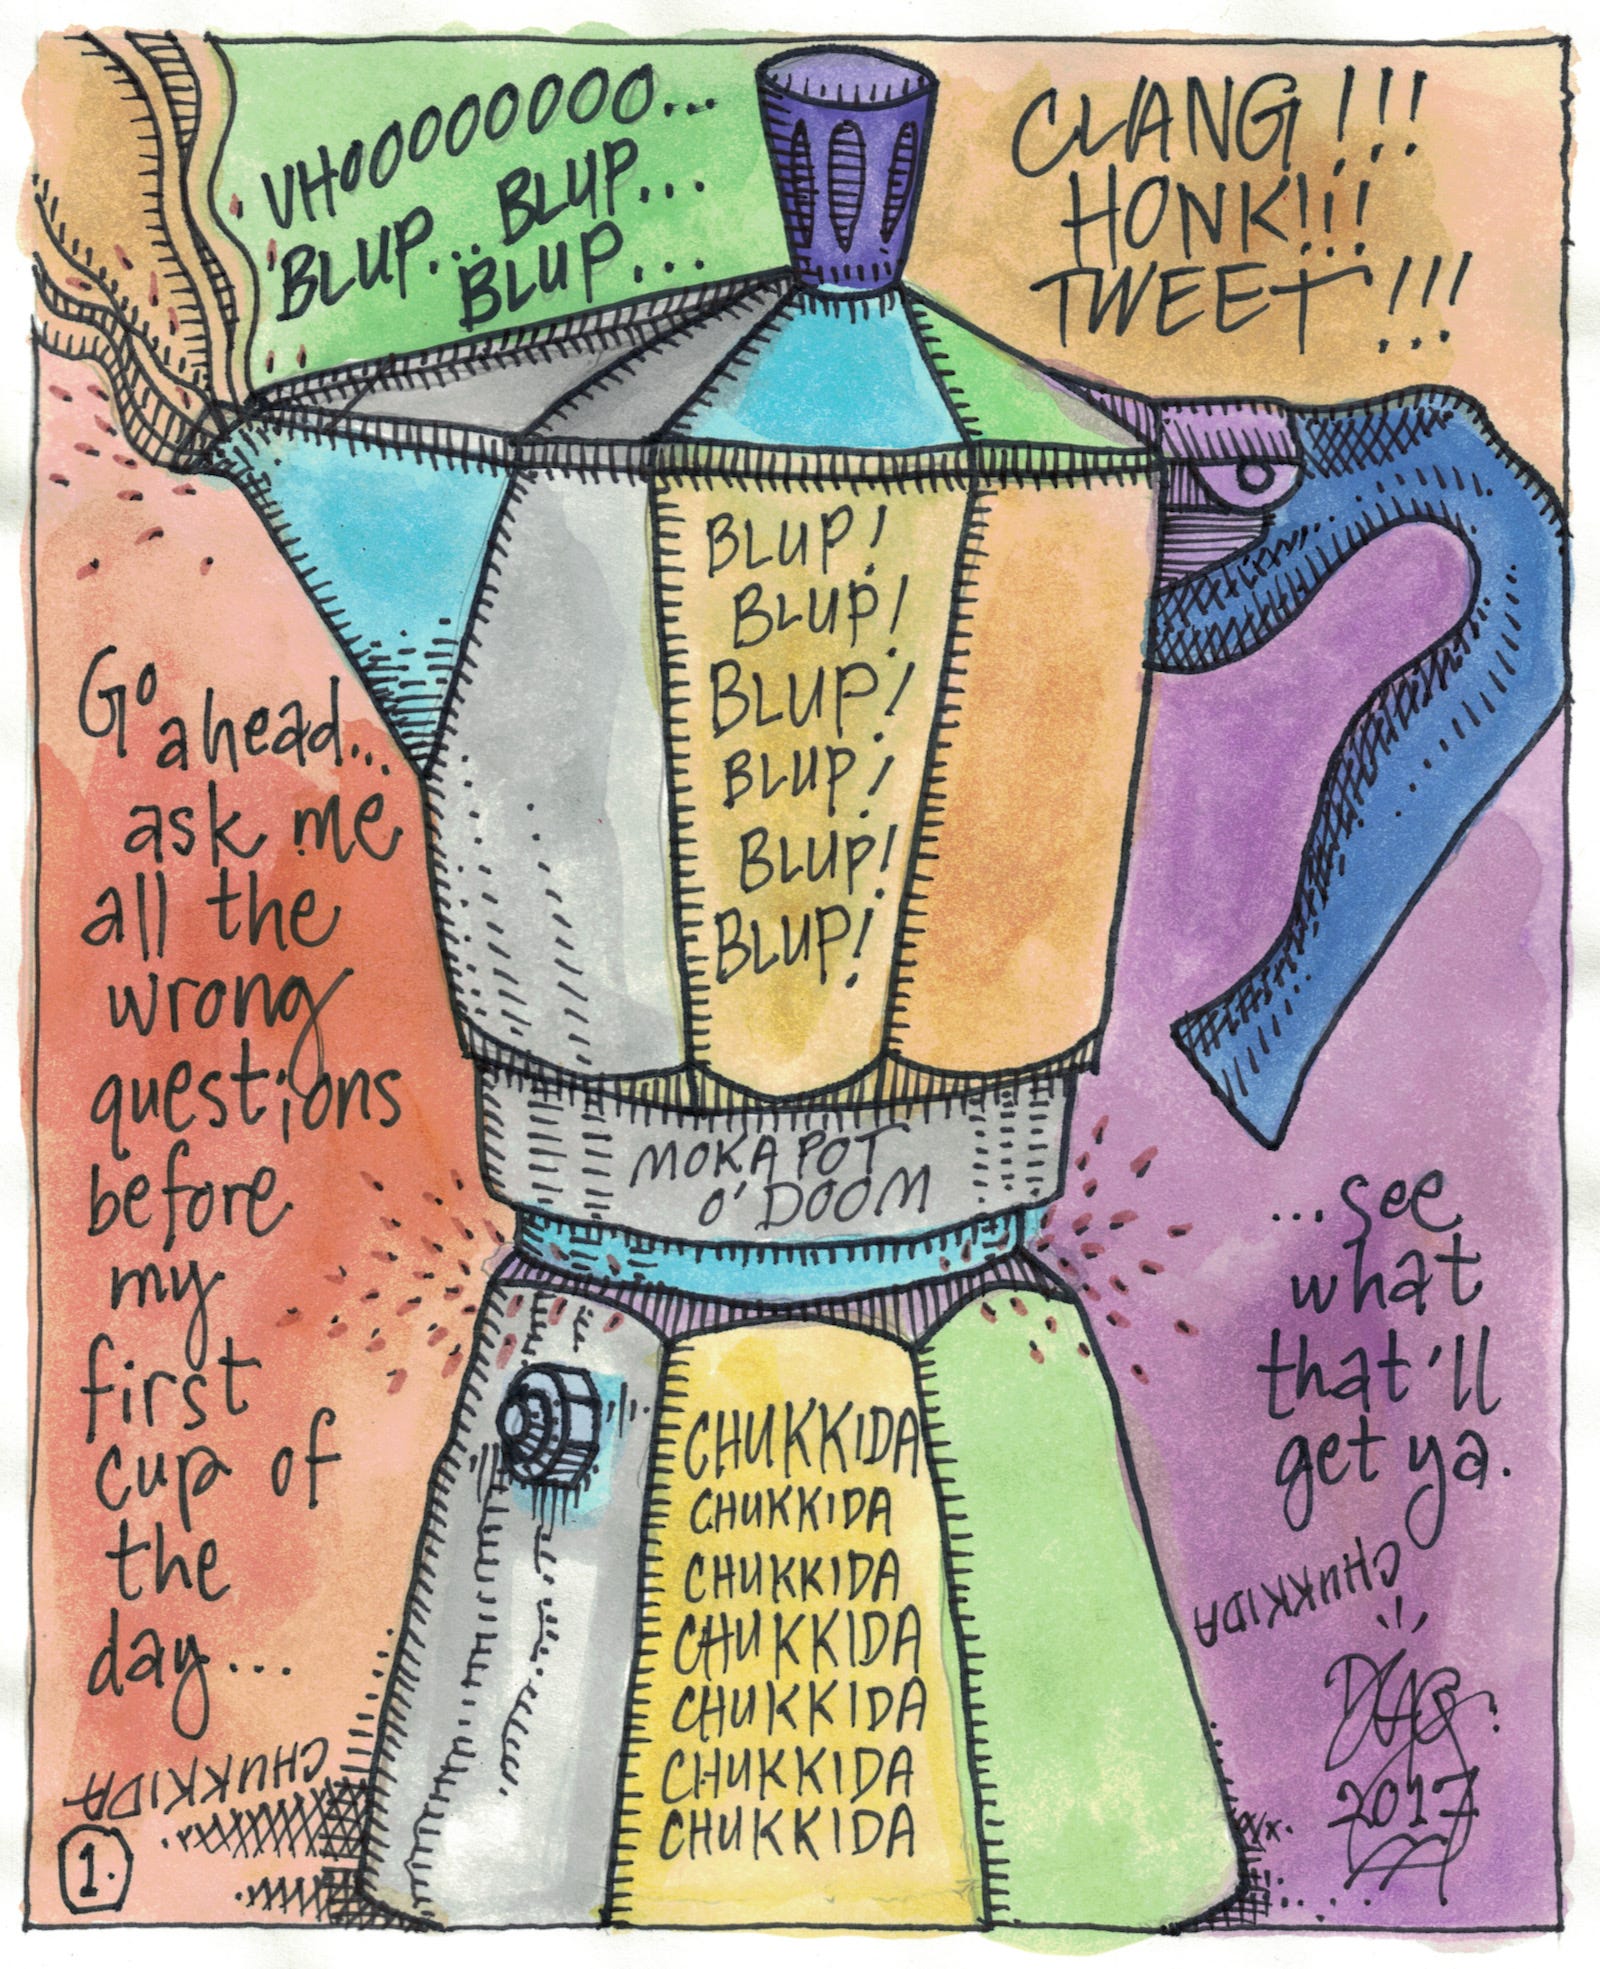 VHOOOOOOOO...
BLUP... BLUP...
BLUP...
CLANG!!!
HONK!!!
TWEET!!!
BLUP!
BLUP!
BLUP!
BLUP!
BLUP!
BLUP!
Go ahead...
ask me
all the
wrong
questions
before
my
first
cup of
the
day...
MOKA POT
O' DOOM
...see
what
that'll
get ya.
CHUKKIDA
CHUKKIDA
CHUKKIDA
CHUKKIDA
CHUKKIDA
CHUKKIDA
CHUKKIDA
CHUKKIDA
CHUKKIDA
1.
2017